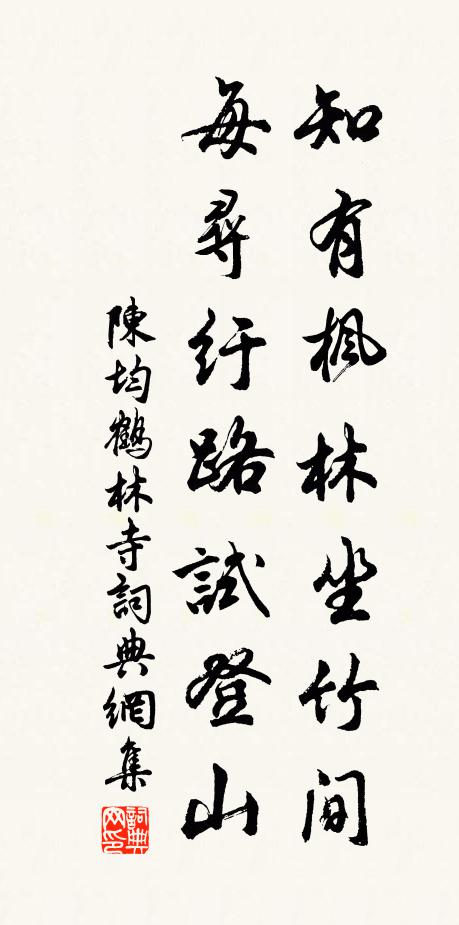 知有楓林坐竹間
每尋紆路試登山
陳均鶴林寺詞典網集
詞典网印